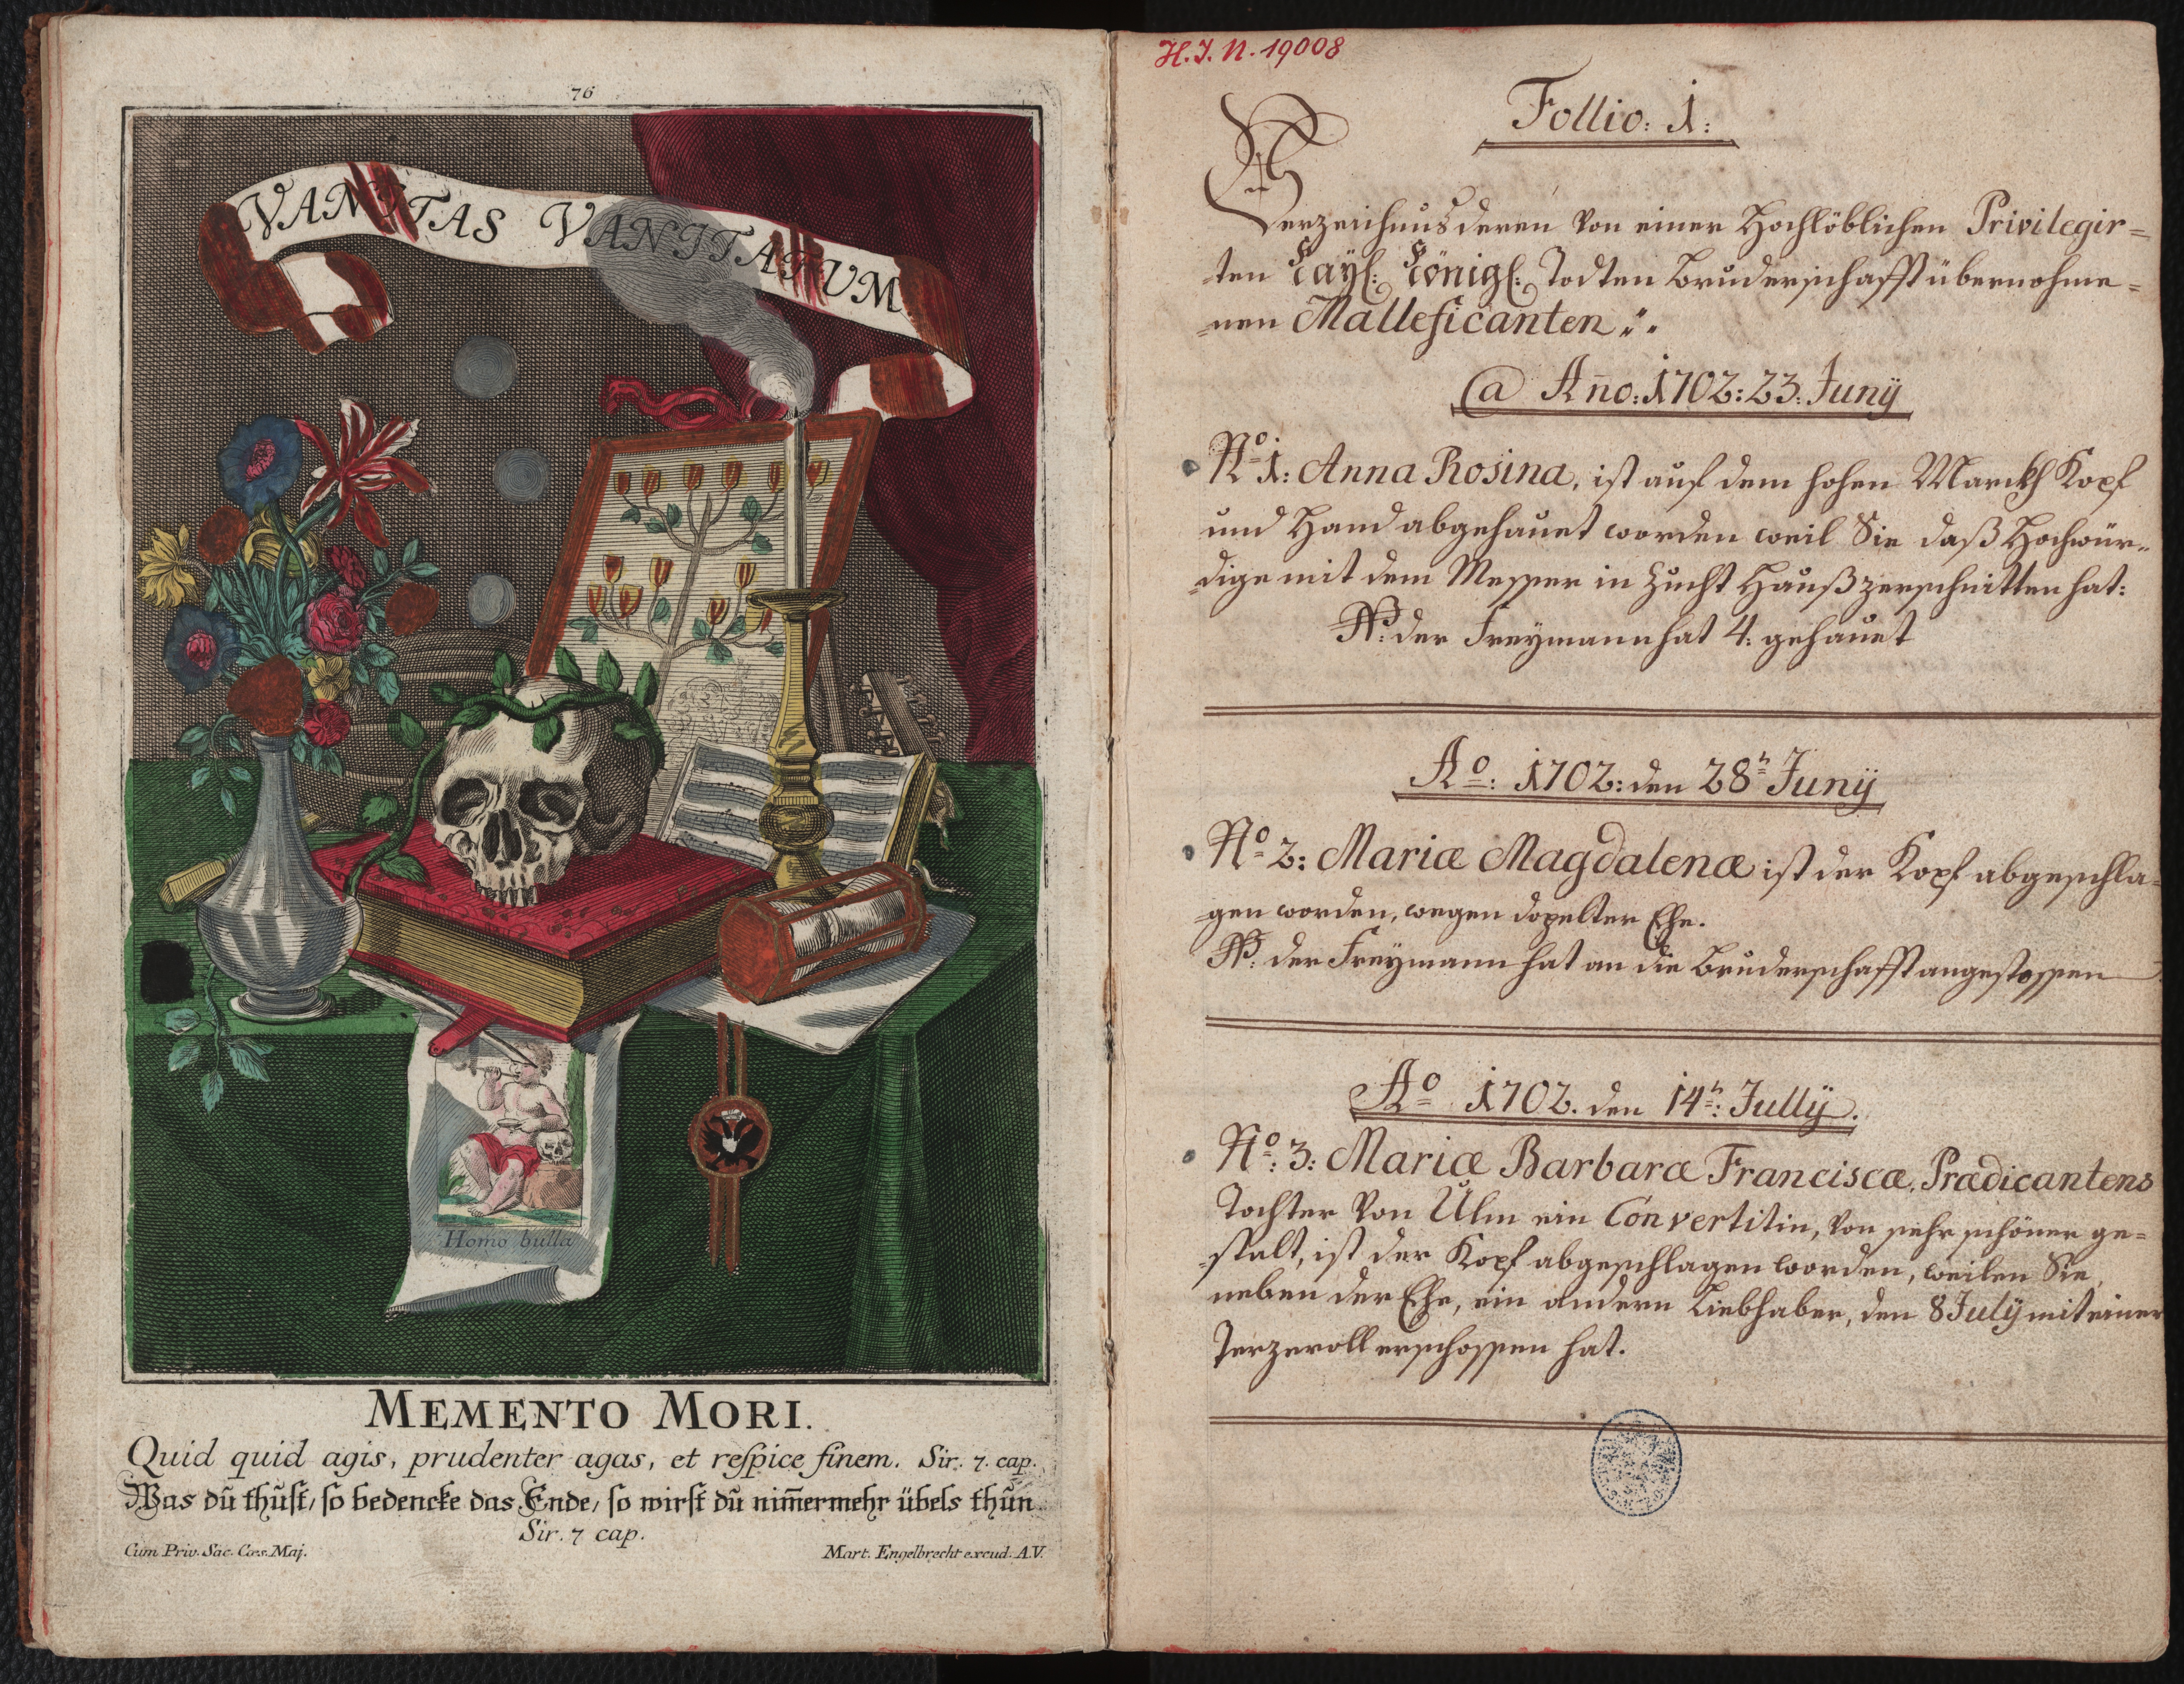 76
VANITAS VANITATUM
Homo bulla
MEMENTO MORI.
Quid quid agis, prudenter agas, et reſpice finem. Sir. 7. cap.
Was dŭ thŭſt, ſo bedencke das Ende, ſo wirſt dŭ nim̄ermehr übels thŭn
Sir. 7 cap.
Cum Priv. Sac. Cæs. Maj.
Mart. Engelbrecht excud. A.V.
H. J. N. 19008
Follio: 1:
Verzeichnus deren von einer Hochlöblichen Privilegir=
ten Kayl: Königl: Todten Bruderschafft übernohme=
=nen Malleficanten
@ An̄o: 1702: 23: Junÿ
No 1: Anna Rosina, ist auf dem hohen Marckh Kopf
und Hand abgehauet worden weil Sie daß Hochwür=
=dige mit dem Messer in Zucht Hauß zerschnitten hat:
NB: der Freymann hat 4: gehauet
Ao: 1702: den 28n Junÿ
No 2: Mariæ Magdalenæ ist der Kopf abgeschla=
=gen worden, wegen dopelter Ehe.
NB: der Freymann hat an die Bruderschafft angestossen
Ao 1702. den 14n: Jullÿ.
No: 3: Mariæ Barbaræ Franciscæ, Prædicantens
Tochter von Ulm ein Convertitin, von sehr schöner ge=
=stalt, ist der Kopf abgeschlagen worden, weilen Sie,
neben der Ehe, ein andern Liebhaber, den 8 Julÿ mit einer
Terzeroll erschossen hat.